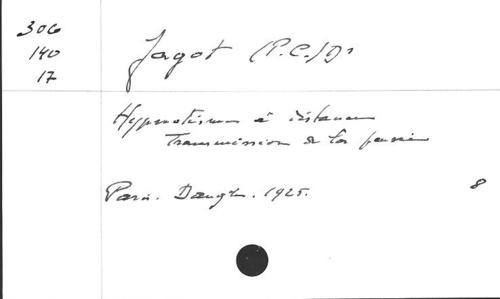 306
140
17
Jagot (P.C.) Dr
Hypnotisme à distance
Transmission de la pensée
Paris. Dangles. 1925.
8